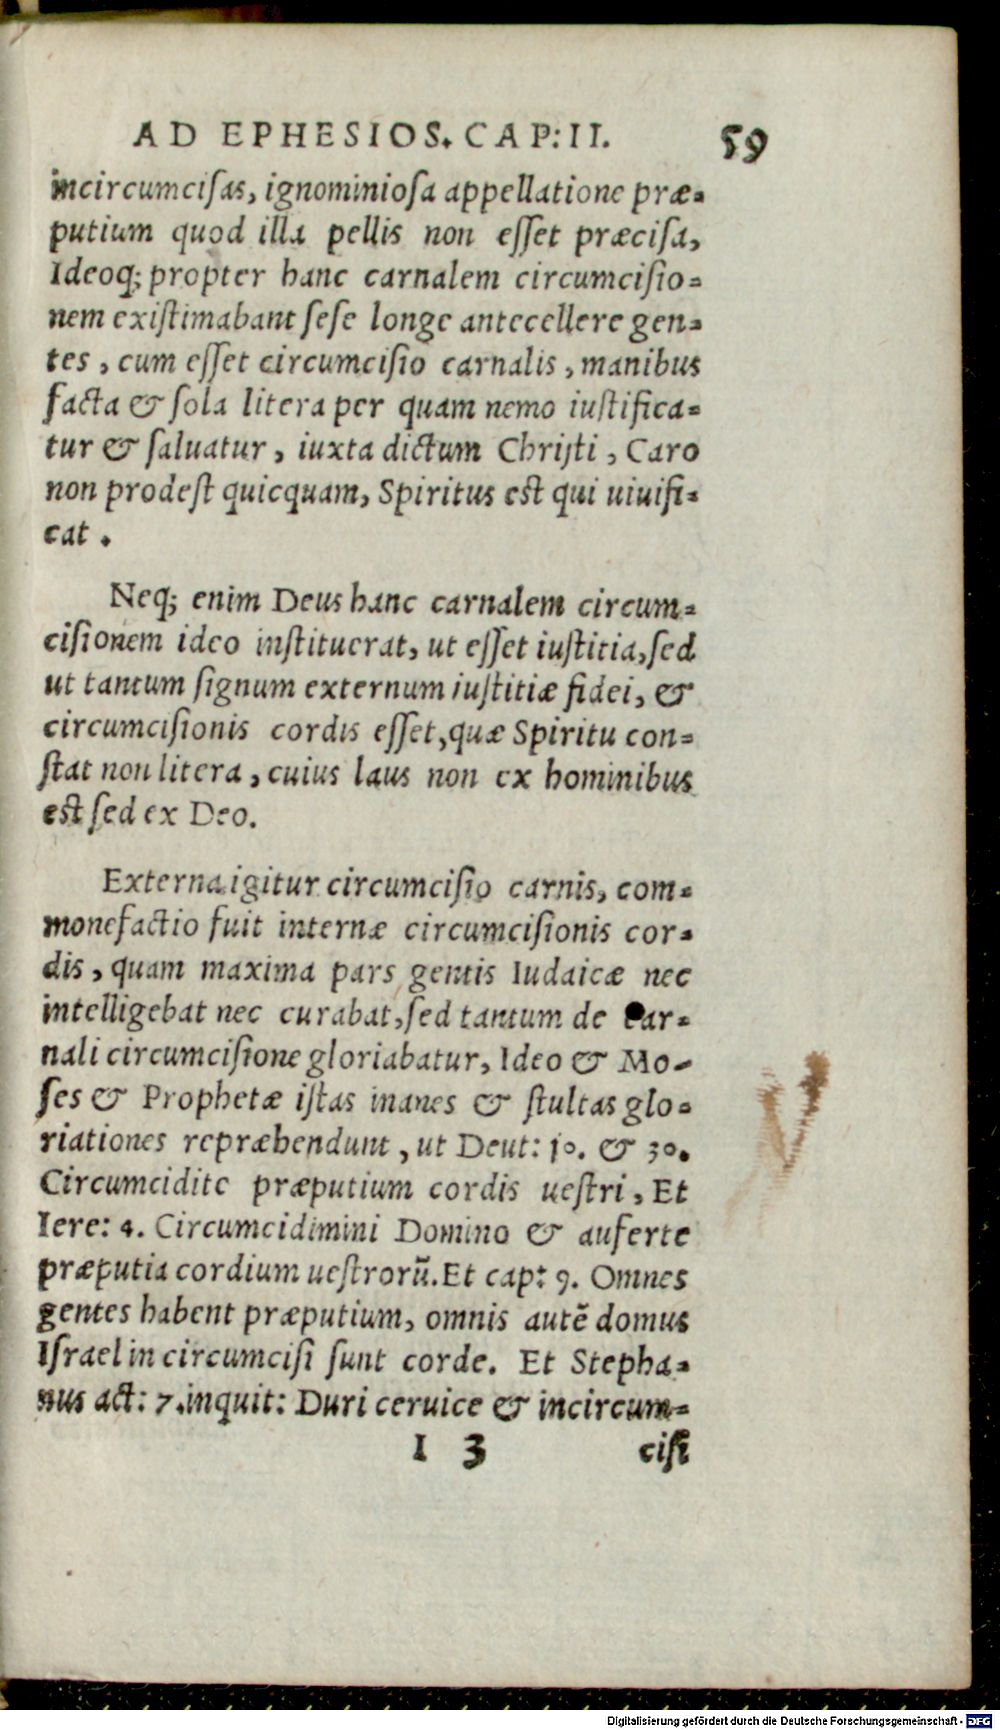 AD EPHESIOS. CAP: II. 59
incircumciſas, ignominioſa appellatione præ-
putium quod illa pellis non eſſet præciſa,
Ideoq; propter hanc carnalem circumciſio-
nem exiſtimabant ſeſe longe antecellere gen-
tes, cum eſſet circumciſio carnalis, manibus
facta & ſola litera per quam nemo iuſtifica-
tur & ſaluatur, iuxta dictum Chriſti, Caro
non prodeſt quicquam, Spiritus eſt qui uiuifi-
cat.
Neq; enim Deus hanc carnalem circum-
ciſionem ideo inſtituerat, ut eſſet iuſtitia, ſed
ut tantum ſignum externum iuſtitiæ fidei, &
circumciſionis cordis eſſet, quæ Spiritu con-
ſtat non litera, cuius laus non ex hominibus
eſt ſed ex Deo.
Externa igitur circumciſio carnis, com-
monefactio fuit internæ circumciſionis cor-
dis, quam maxima pars gentis Iudaicæ nec
intelligebat nec curabat, ſed tantum de car-
nali circumciſione gloriabatur, Ideo & Mo-
ſes & Prophetæ iſtas inanes & ſtultas glo-
riationes repræhendunt, ut Deut: 10. & 30.
Circumcidite præputium cordis ueſtri, Et
Iere: 4. Circumcidimini Domino & auferte
præputia cordium ueſtrorũ. Et cap: 9. Omnes
gentes habent præputium, omnis autẽ domus
Iſrael in circumciſi ſunt corde. Et Stepha-
nus act: 7. inquit: Duri ceruice & incircum-
I 3 ciſi
Digitalisierung gefördert durch die Deutsche Forschungsgemeinschaft - DFG